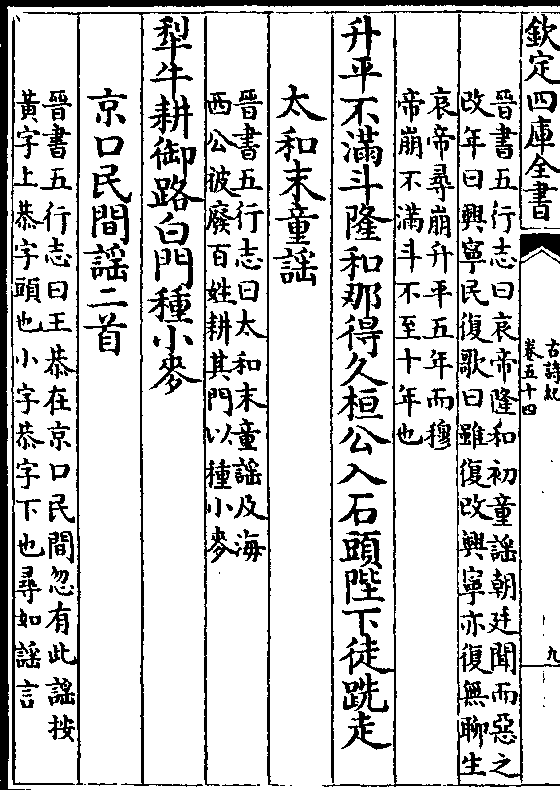 欽定四庫全書
古詩紀
卷五十四
九
晉書五行志曰哀帝隆和初童謡朝廷聞而惡之
改年曰興寧民復歌曰雖復改興寧亦復無聊生
哀帝尋崩升平五年而穆
帝崩不滿斗不至十年也
升平不滿斗隆和那得久桓公入石頭陛下徒跣走
太和末童謡
晉書五行志曰太和末童謡及海
西公被廢百姓耕其門以種小麥
犁牛耕御路白門種小麥
京口民間謡二首
晉書五行志曰王恭在京口民間忽有此謡按
黃字上恭字頭也小字恭字下也尋如謡言